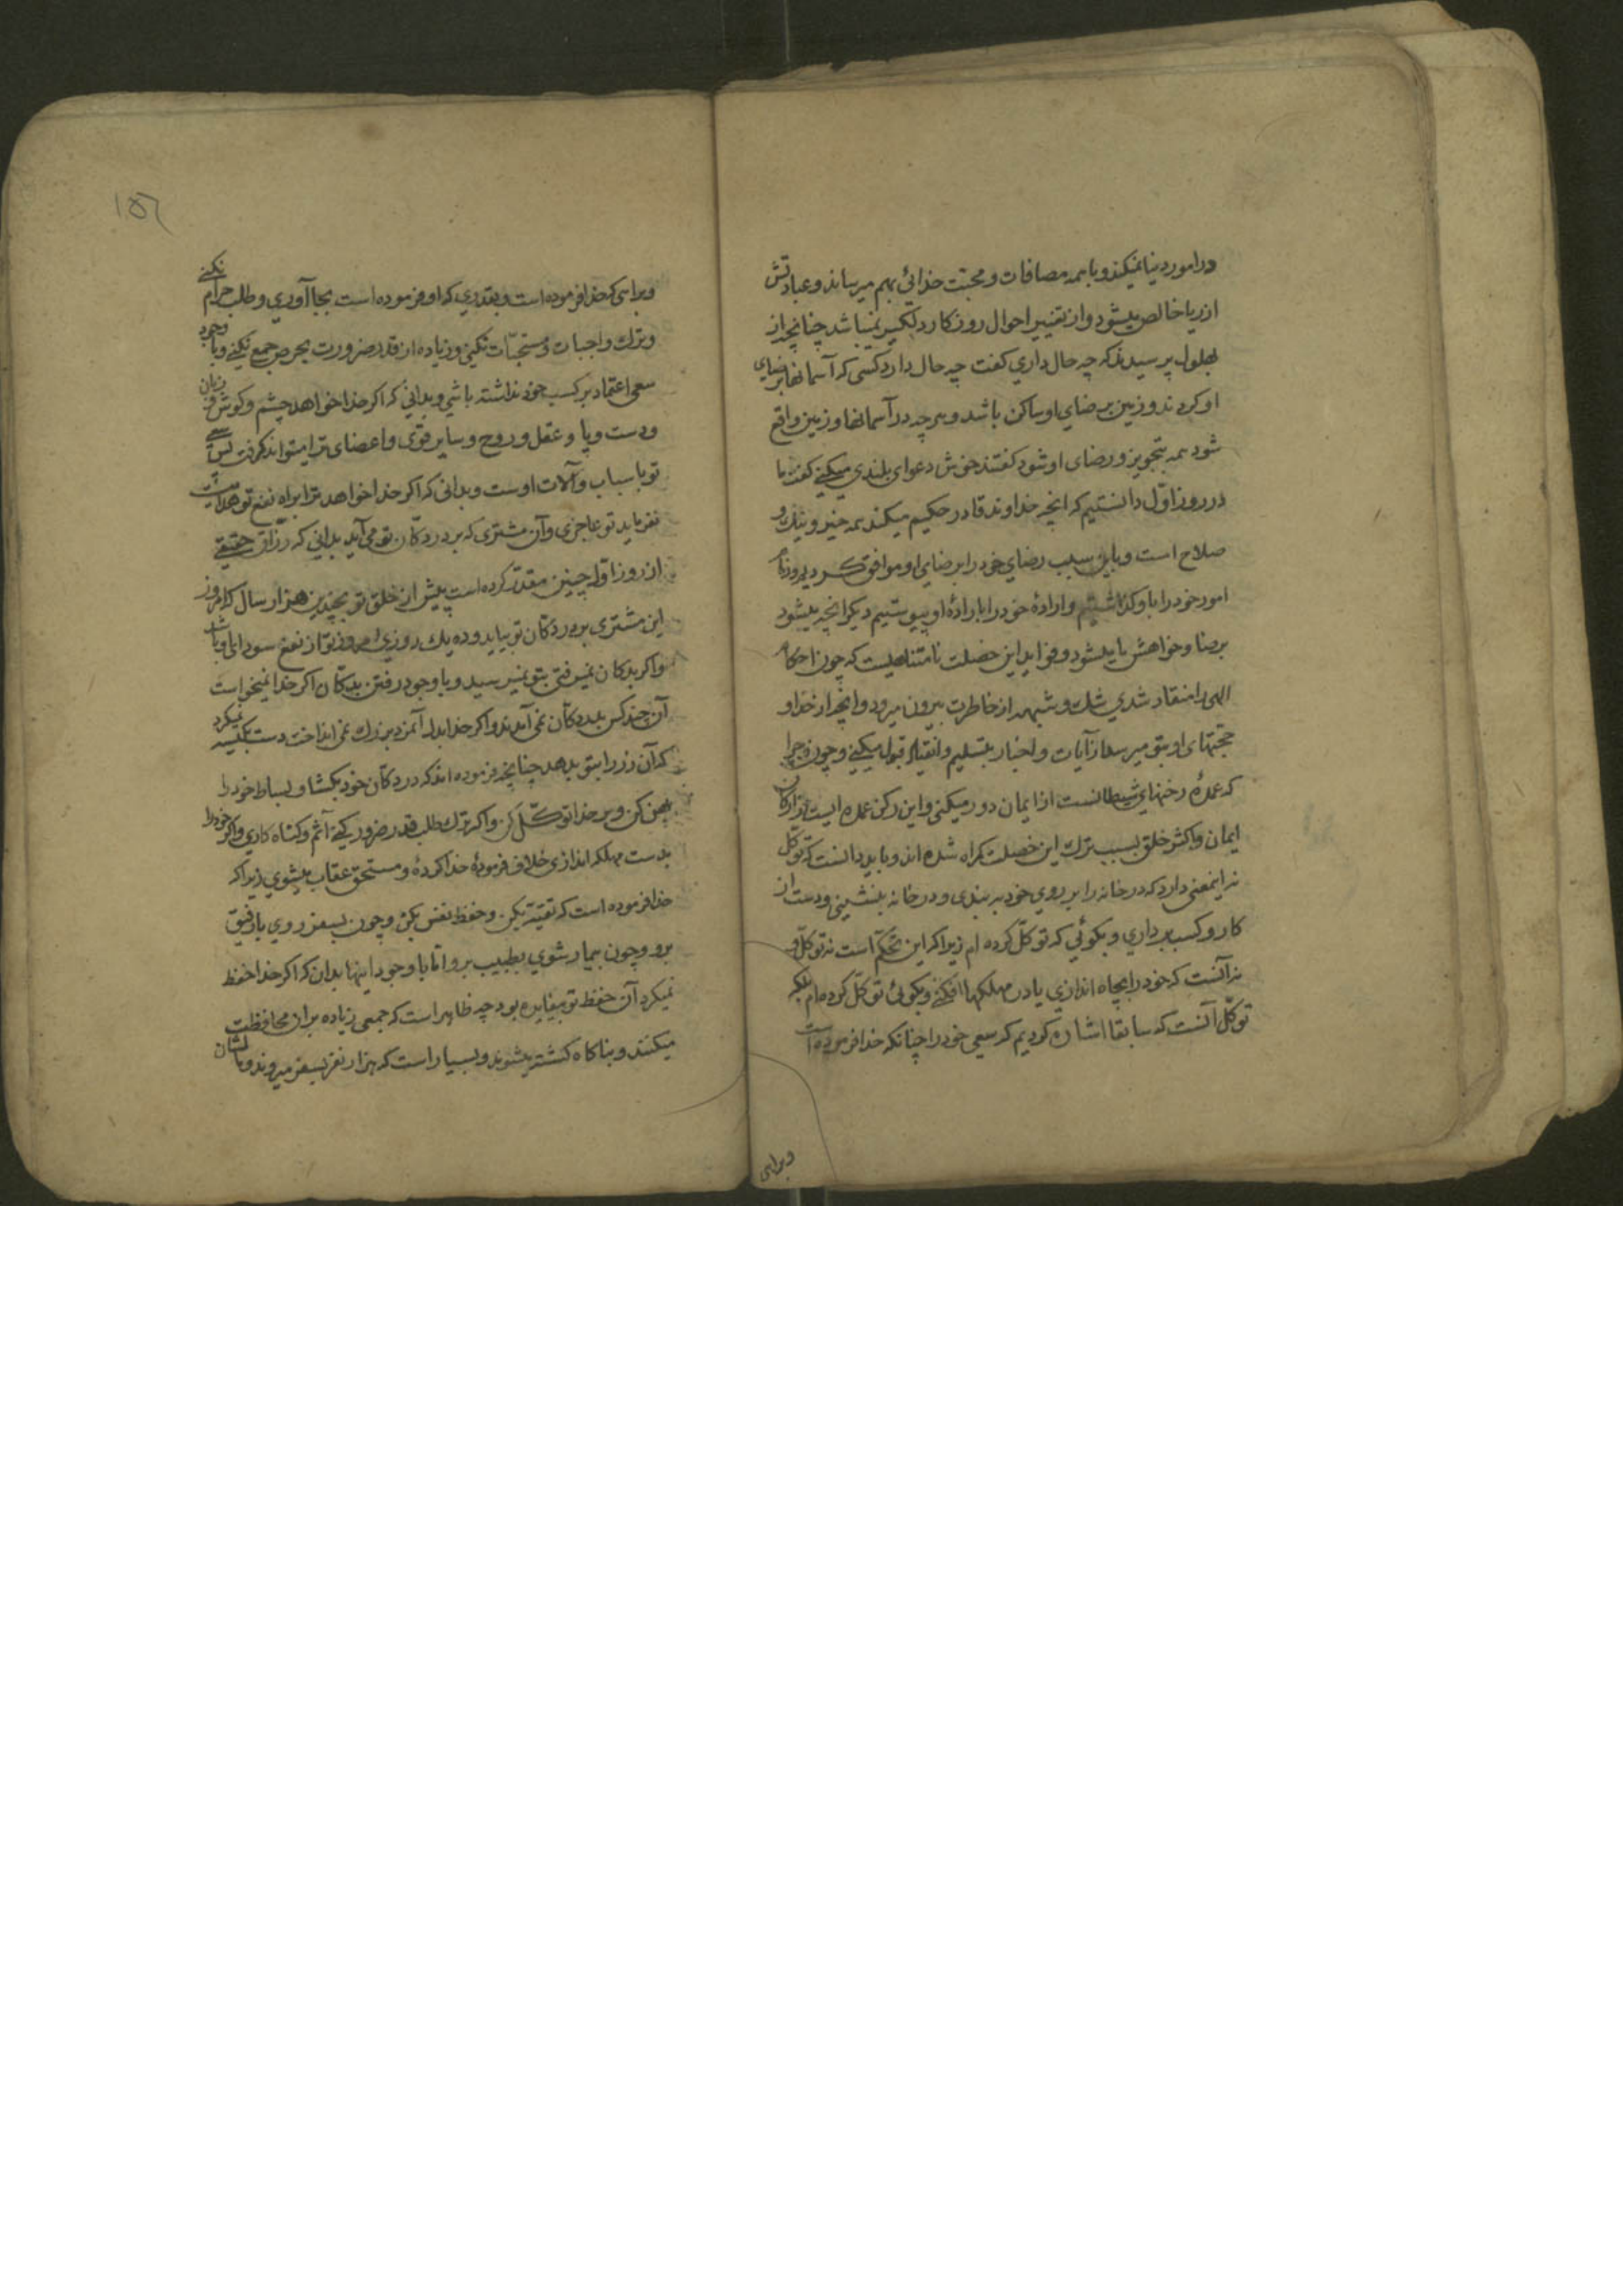 در امور دنیا نمیکند و با همه مصافات و محبت خدائی بهم میرساند و عبادتش
از ریا خالص میشود و از تغییر احوال روزکار دلکیر نمیباشد چنانچه از
بهلول پرسیدند که چه حال داری کفت چه حال دارد کسی که آسمانها برضای
او کردند و زمین برضای او ساکن باشد و هرچه در آسمانها و زمین واقع
شود همه بتجویز و رضای او شود کفتند خوش دعوای بلندی میکنی کفت ما
در روز اوّل دانستیم که انچه خداوند قادر حکیم میکند همه خیر و نیک و
صلاح است و باین سبب رضای خود را برضای او موافق کردیم و زمام
امور خود را باو کذاشتیم و ارادهٔ خود را بارادهٔ او پیوستیم دیکر انچه میشود
برضا و خواهش ما میشود و فواید این خصلت نامتناهیست که چون احکام
الهی را منقاد شدی شک و شبهه از خاطرت بیرون میرود و انچه از خدا و
حجتهای او بتو میرسد از آیات و اخبار بتسلیم و انقیاد قبول میکنی و چون و چرا
که عمدهٔ رخنهای شیطانست از ایمان دور میکنی و این رکن عمده ایست از ارکان
ایمان و اکثر خلق بسبب ترک این خصلت کمراه شده اند و باید دانست که توکّل
نه اینمعنی دارد که در خانه را بر روی خود ببندی و در خانه بنشینی و دست از
کار و کسب برداری و بکوئی که توکّل کرده ام زیرا که این تحکّم است نه توکّل و
نه آنست که خود را بچاه اندازی یا در مهلکها افکنی و بکوئی توکّل کرده ام بلکه
توکّل آنست که سابقا اشاره کردیم که سعی خود را چنانکه خدا فرموده است
وبراهی
وبراهی که خدا فرموده است و بقدری که او فرموده است بجا آوری و طلب حرام نکنی
و ترک واجبات و مستحبّات نکنی و زیاده از قدر ضرورت بحرص جمع نکنی و با وجود
سعی اعتماد بر کسب خود نداشته باشی و بدانی که اکر خدا خواهد چشم و کوش و زبان
و دست و پا و عقل و روح و سایر قوی و اعضای ترا میتواند کرفت پس سعی
تو باسباب و آلات اوست و بدانی که اکر خدا خواهد ترا براه نفع تو هدایت
نفرماید تو عاجزی و آن مشتری که بر در دکّان تو می آید بدانی که رزّاق حقیقی
از روز اوّل چنین مقدّر کرده است پیش از خلق تو بچندین هزار سال که امروز
این مشتری بر در دکّان تو بیاید و ده یک روزیٔ امروز تو از نفع سودای او باشد
و اکر بدکان نمیرفتی بتو نمیرسید و با وجود رفتن بدکّان اکر خدا نمیخواست
آن چند کس بدر دکّان نمی آمدند و اکر خدا بدل آنمرد بزرک نمی انداخت دست بکیسه نمیکرد
که آن زر را بتو بدهد چنانچه فرموده اند که در دکّان خود بکشا و بساط خود را
پهن کن و بر خدا توکّل کن و اکر ترک طلب قدر ضرور کنی آثم و کناه کاری و اکر خود را
بدست مهلکه اندازی خلاف فرمودهٔ خدا کردهٔ و مستحق عقاب میشوی زیرا که
خدا فرموده است که تقیّه بکن و حفظ نفس بکن و چون بسفر روی با رفیق
برو و چون بیمار شوی بطبیب برو امّا با وجود اینها بدان که اکر خدا حفظ
نمیکرد آن حفظ تو بیفایده بود چه ظاهر است که جمعی زیاده بر آن محافظت
میکنند و بناکاه کشته میشوند و بسیار است که هزار نفر بسفر میروند و